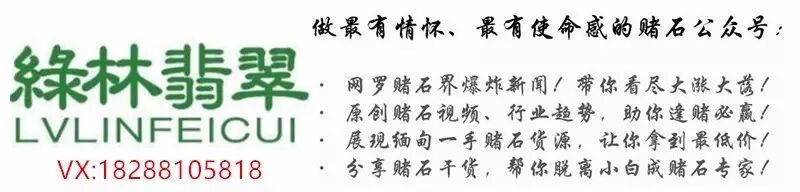 做最有情怀、最有使命感的赌石公众号：
綠林翡翠
LVLINFEICUI
VX:18288105818
· 网罗赌石界爆炸新闻！带你看尽大涨大落！
· 原创赌石视频、行业趋势，助你逢赌必赢！
· 展现缅甸一手赌石货源，让你拿到最低价！
· 分享赌石干货，帮你脱离小白成赌石专家！